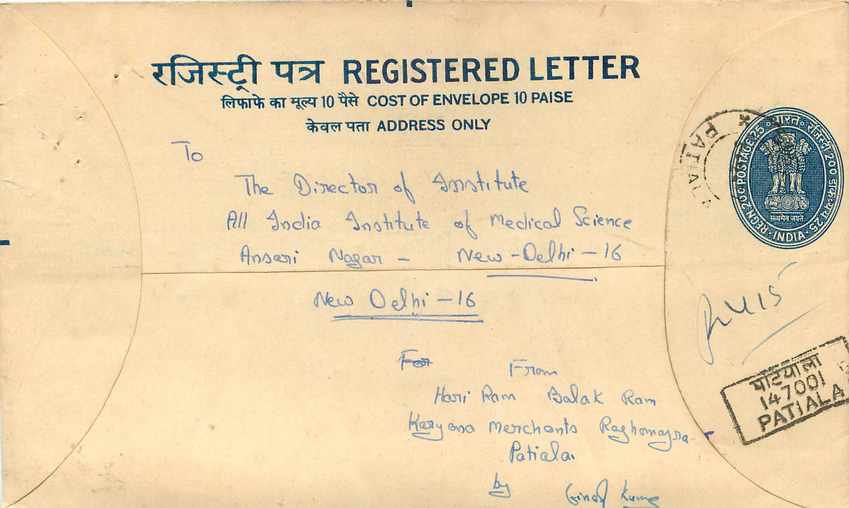 रजिस्ट्री पत्र REGISTERED LETTER
लिफाफे का मूल्य 10 पैसे COST OF ENVELOPE 10 PAISE
केवल पता ADDRESS ONLY
REGN 200 POSTAGE 25 भारत रजिस्ट्री 200 डाक-व्यय 25 INDIA
सत्यमेव जयते
PATIALA
To
The Director of Institute
All India Institute of Medical Science
Ansari Nagar - New-Delhi-16
New Delhi-16
For From
Hari Ram Balak Ram
Karyana Merchants
Patiala
by Kumar
पटियाला
147001
PATIALA